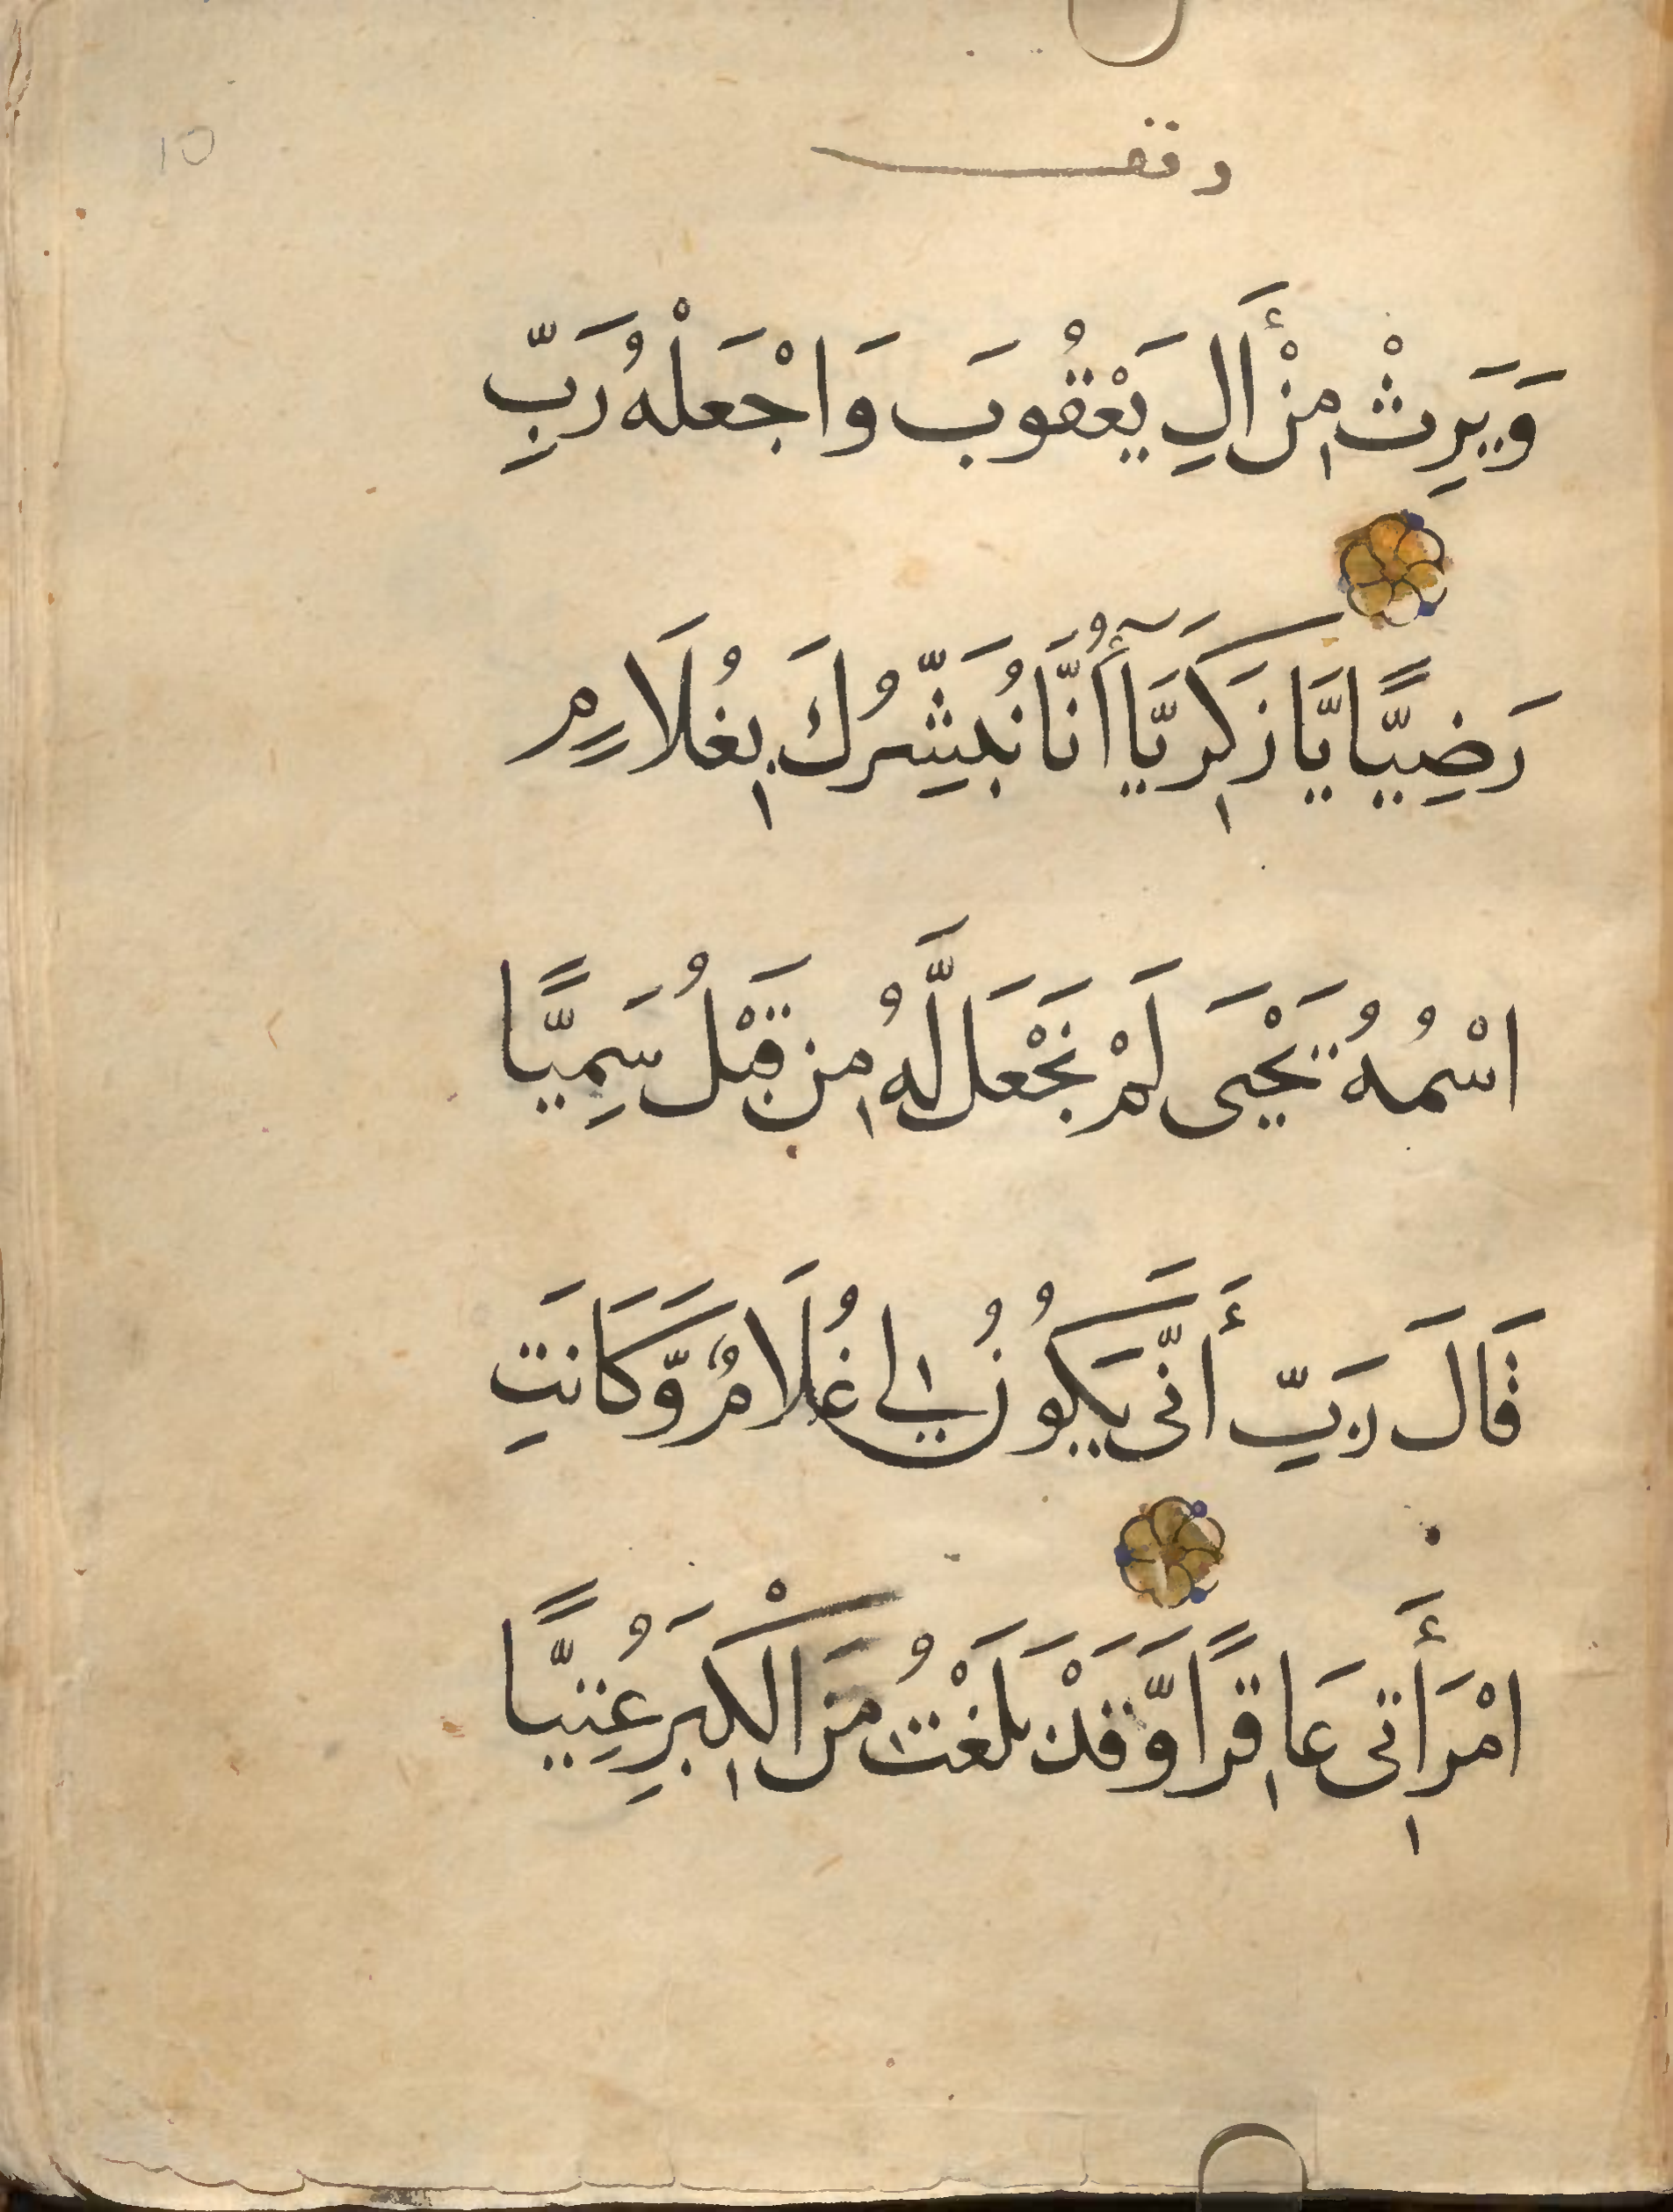 10
وقف
وَيَرِثْ مِنْ أَالِ يَعْقُوبَ وَاجْعَلْهُ رَبِّ
رَضِيًّا يَّا زَكَرِيَّا أُنَّا نُبَشِّرُكَ بِغُلَامٍ
اسْمُهُ يَحْيَى لَمْ نَجْعَل لَّهُ مِن قَبْلُ سَمِيًّا
قَالَ رَبِّ أَنَّى يَكُونُ لِي غُلَامٌ وَّكَانَتِ
امْرَأَتِى عَاقِرًا وَّقَدْ بَلَغْتُ مِنَ الْكِبَرِ عُتِيًّا